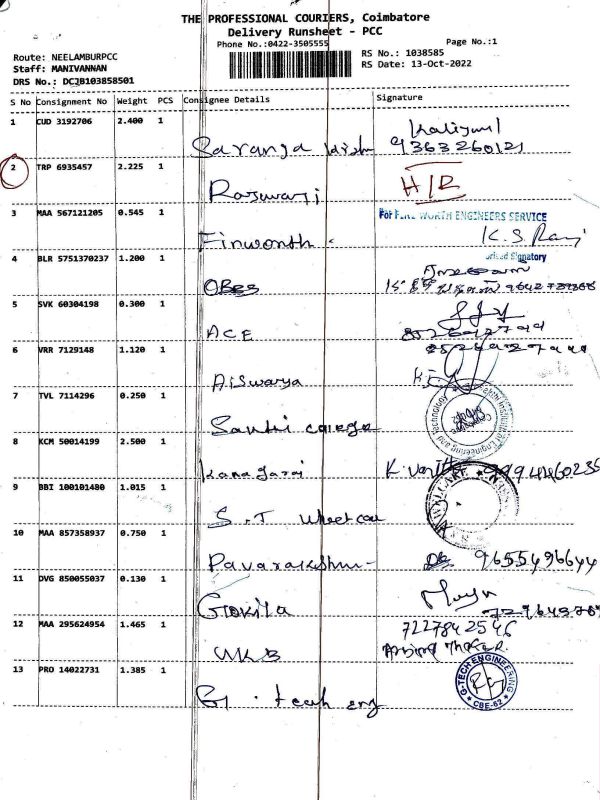 THE PROFESSIONAL COURIERS, Coimbatore
Delivery Runsheet - PCC
Phone No.:0422-3505555
Page No.:1
Route: NEELAMBURPCC
RS No.: 1038585
Staff: MANIVANNAN
RS Date: 13-Oct-2022
DRS No.: DCJB103858501
S No Consignment No Weight PCS Consignee Details Signature
1 CUD 3192706 2.400 1
Saranga 9363260121
2 TRP 6935457 2.225 1
Rajwarji H/R
3 MAA 567121205 0.545 1
For FINE WORTH ENGINEERS SERVICE
Finworth K.S. Ravi
Signatory
4 BLR 5751370237 1.200 1
OBES
5 SVK 60304198 0.300 1
ACE
6 VRR 7129148 1.120 1
Aiswarya
7 TVL 7114296 0.250 1
Engineering and Technology
Santhi college
8 KCM 50014199 2.500 1
Kanagaraj
9 BBI 100101480 1.015 1
S.T wheel care
10 MAA 857358937 0.750 1
9655496644
11 DVG 850055037 0.130 1
Gokila
12 MAA 295624954 1.465 1
7227842546
UKB
13 PRO 14022731 1.385 1
G-TECH ENGINEERING
CBE-62
G. tech eng